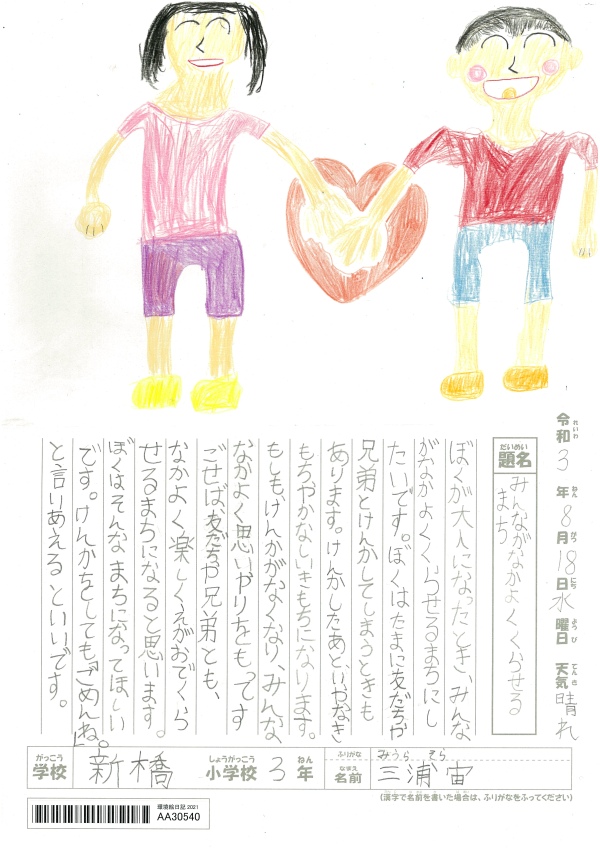 令和3年8月18日水曜日 天気 晴れ
れいわ ねん がつ にち ようび てんき
だいめい
題名
みんながなかよくくらせる
まち
ぼくが大人になったとき、みんな
がなかよくくらせるまちにし
たいです。ぼくはたまに友だちや
兄弟とけんかしてしまうときも
あります。けんかしたあと、いやなき
もちやかなしいきもちになります。
もしも、けんかがなくなり、みんな
なかよく思いやりをもってす
ごせば、友だちや兄弟とも、
なかよく楽しくえがおでくら
せるまちになると思います。
ぼくはそんなまちになってほしい
です。けんかをしても「ごめんね。」
と言りあえるといいです。
がっこう しょうがっこう ねん
学校 新橋 小学校 3年
ふりがな みうら そら
なまえ
名前 三浦 宙
(漢字で名前を書いた場合は、ふりがなをふってください)
環境絵日記 2021
AA30540